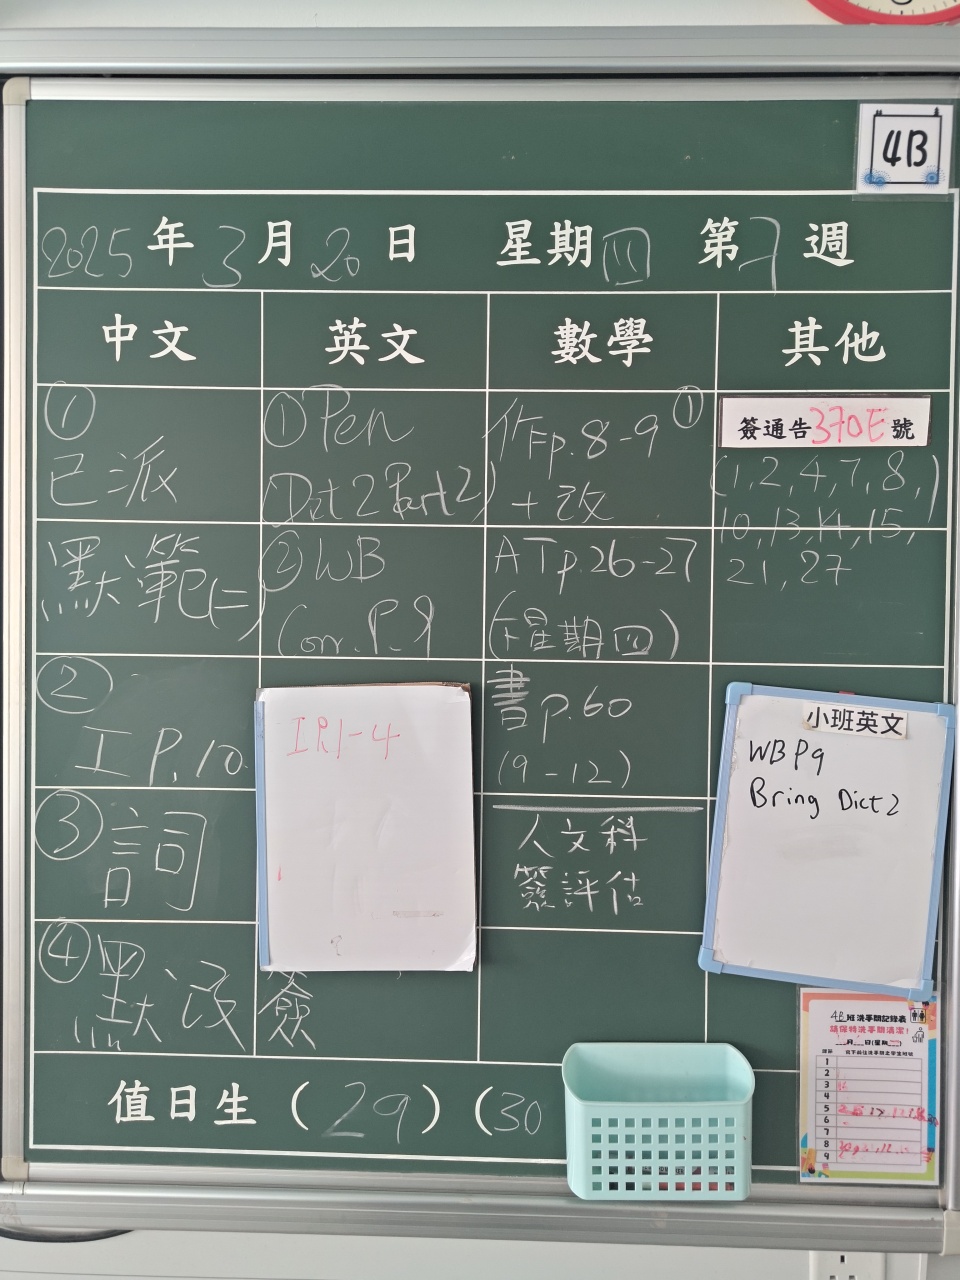 4B
2025年3月20日 星期四 第7週
中文 英文 數學 其他
①
已派
默範(二)
②
工 P.10
③ 詞
④ 默改 簽
① Pen
(Dict 2 Part 2)
② WB
Corr. P.9
I P.1-4
作 p.8-9 ①
+改
AT p.26-27
(下星期四)
書 p.60
(9-12)
人文科
簽評估
簽通告370E號
(1,2,4,7,8,)
10,13,14,15,
21,27
小班英文
WB P9
Bring Dict 2
4B班洗手間記錄表
請保持洗手間清潔！
月 日(星期
1
2
3
4
5
6
7
8
9
值日生 (29) (30